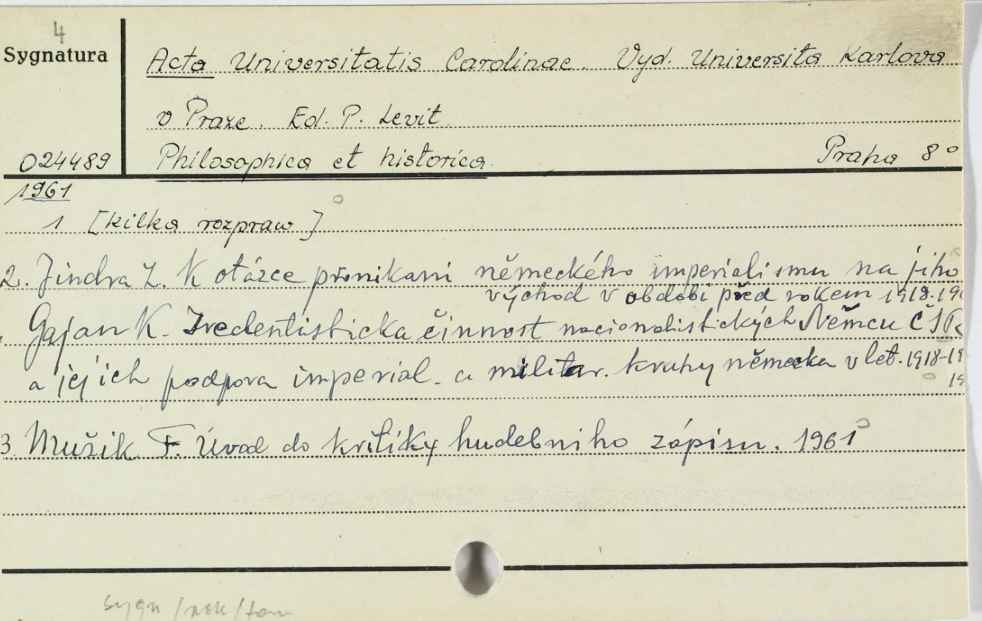 4
Sygnatura
Acta Universitatis Carolinae. Vyd. Universita Karlova
v Praze. Ed. P. Levit.
024489 Philosophica et historica. Praha 8°
1961
1 [kilka rozpraw]
2. Jindra Z. K otázce pronikani německého imperialismu na jiho
východ v obdobi před rokem 1918.
Gajan K. Iredentistická činnost nacionalistických Němcu ČSR
a jejich podpora imperial. a militar. kruhy německa v let. 1918-
3 Mušik F. Úvod do kritiky hudebniho zápisu. 1961
sygn/rok/tom